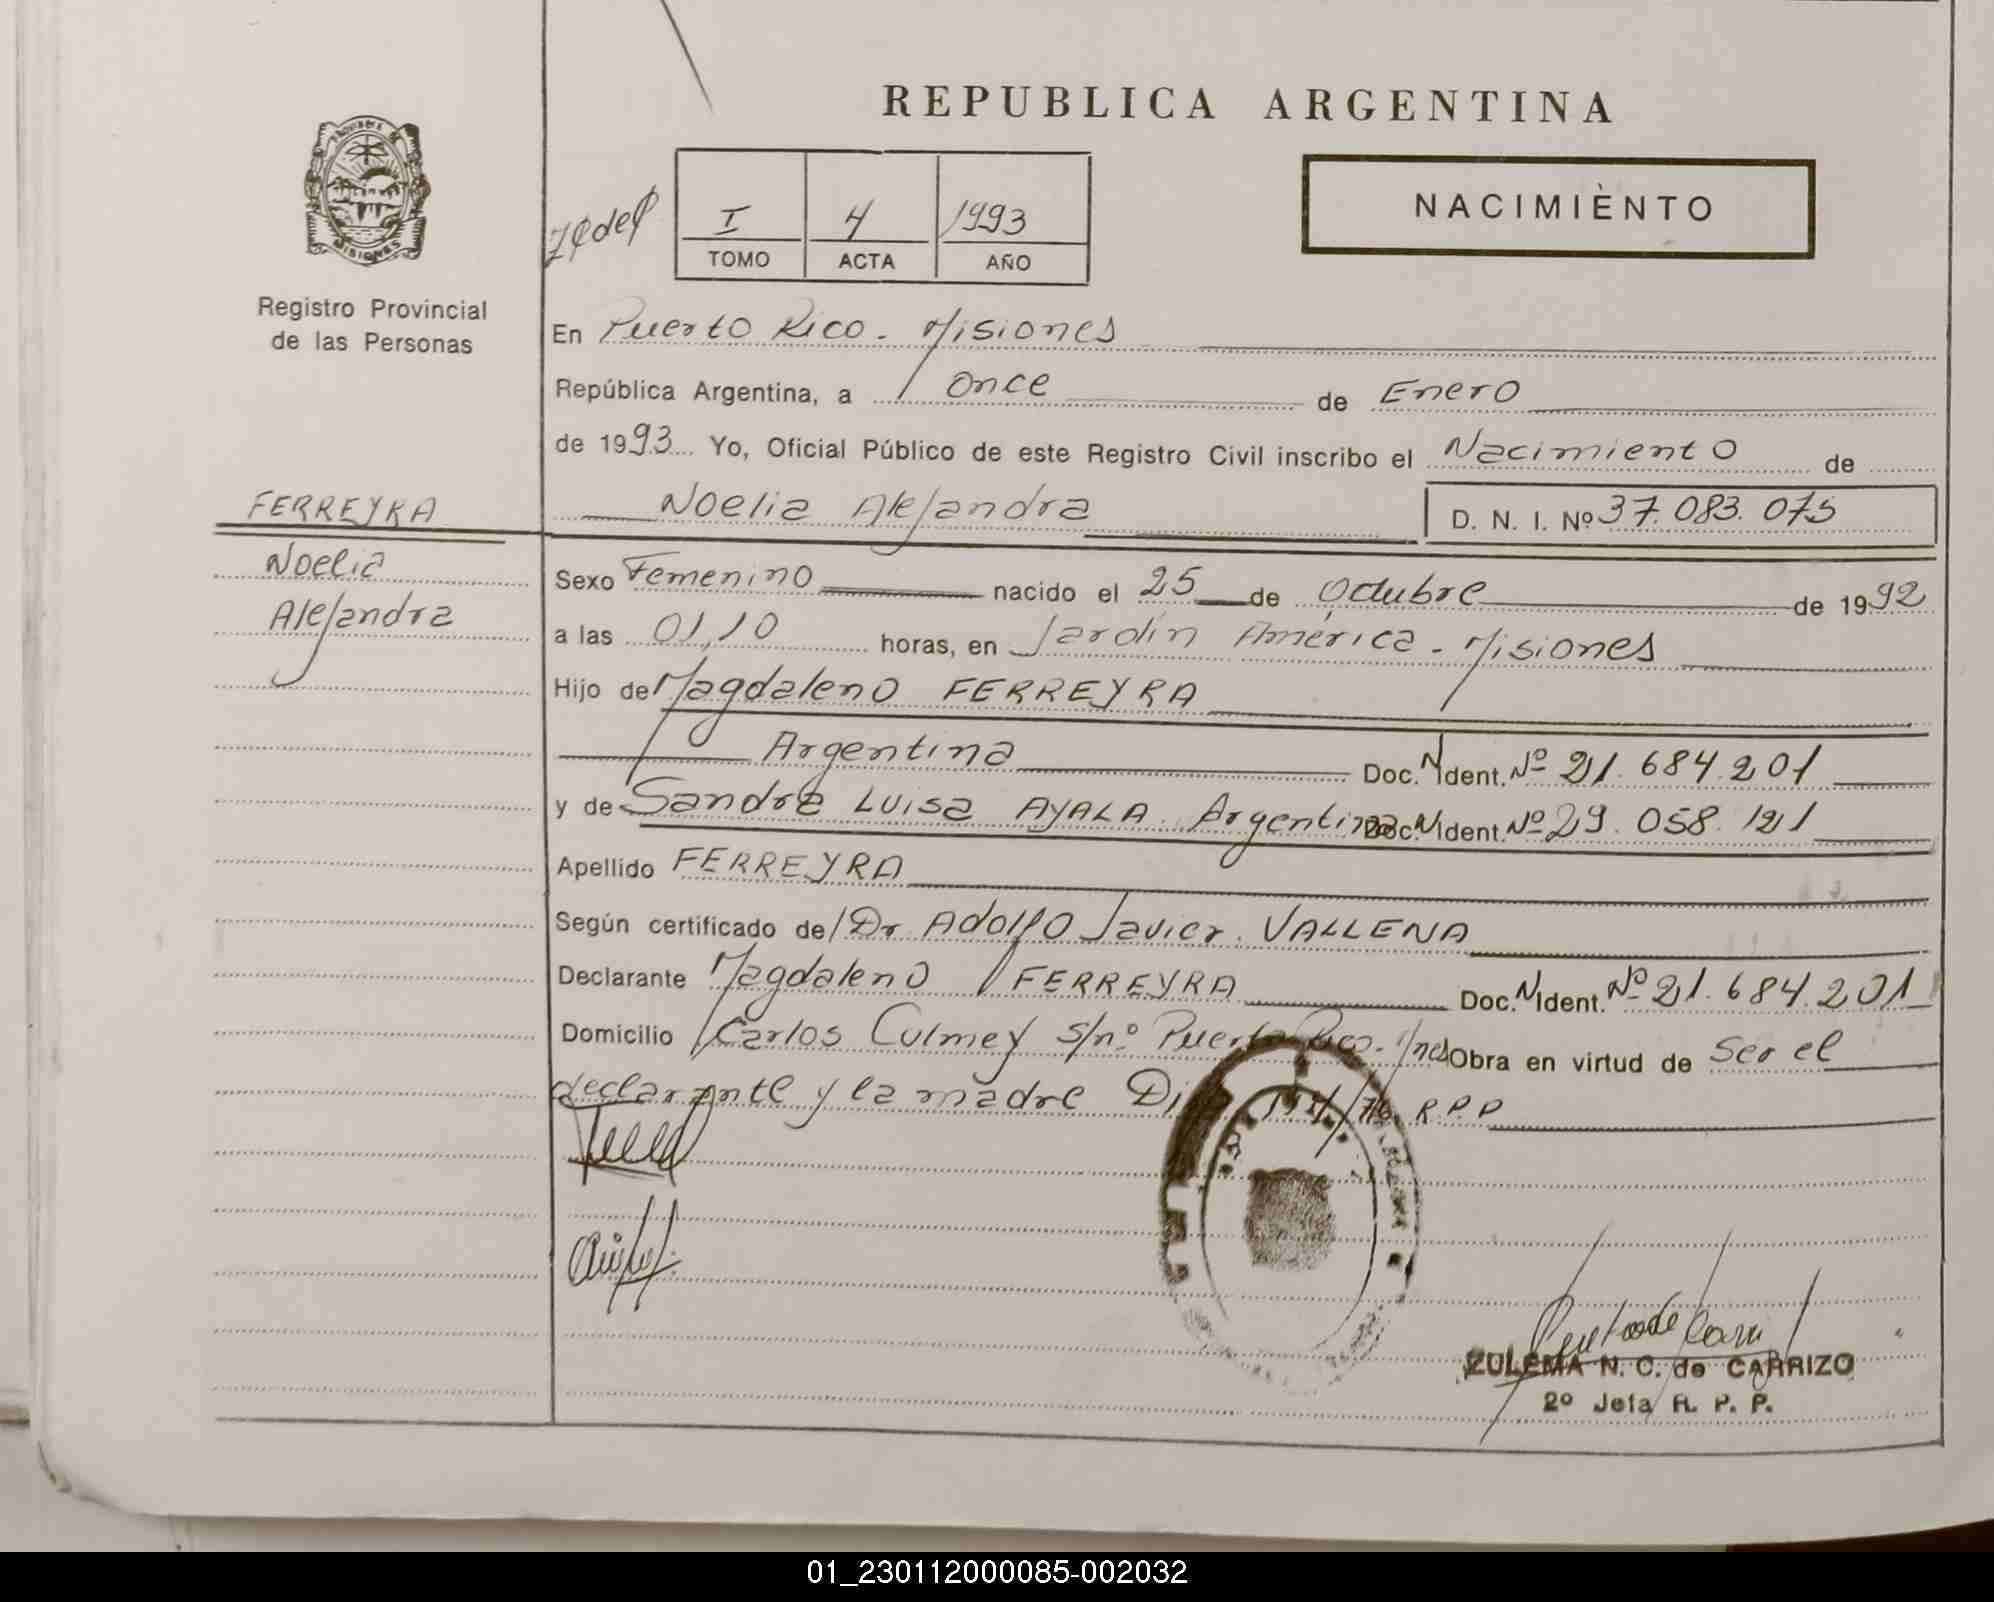 REPUBLICA ARGENTINA
PROVINCIA DE
MISIONES
Registro Provincial
de las Personas
I 4 1993
TOMO ACTA AÑO
NACIMIÈNTO
En Puerto Rico - Misiones
República Argentina, a Once de Enero
de 1993 Yo, Oficial Público de este Registro Civil inscribo el Nacimiento de
FERREYRA
Noelia Alejandra D. N. I. Nº 37.083.075
Noelia
Alejandra
Sexo Femenino nacido el 25 de Octubre de 1992
a las 01,10 horas, en Jardín América - Misiones
Hijo de Magdaleno FERREYRA
Argentina Doc. N Ident. Nº 21.684.201
y de Sandra Luisa AYALA. Argentina Doc. N Ident. Nº 29.058.121
Apellido FERREYRA
Según certificado de Dr Adolfo Javier VALLENA
Declarante Magdaleno FERREYRA Doc. N Ident. Nº 21.684.201
Domicilio Carlos Culmey s/nº Puerto Rico. Obra en virtud de Ser el
declarante y la madre R.P.P
ZULEMA N. C. de CARRIZO
2º Jefa R. P. P.
01_230112000085-002032